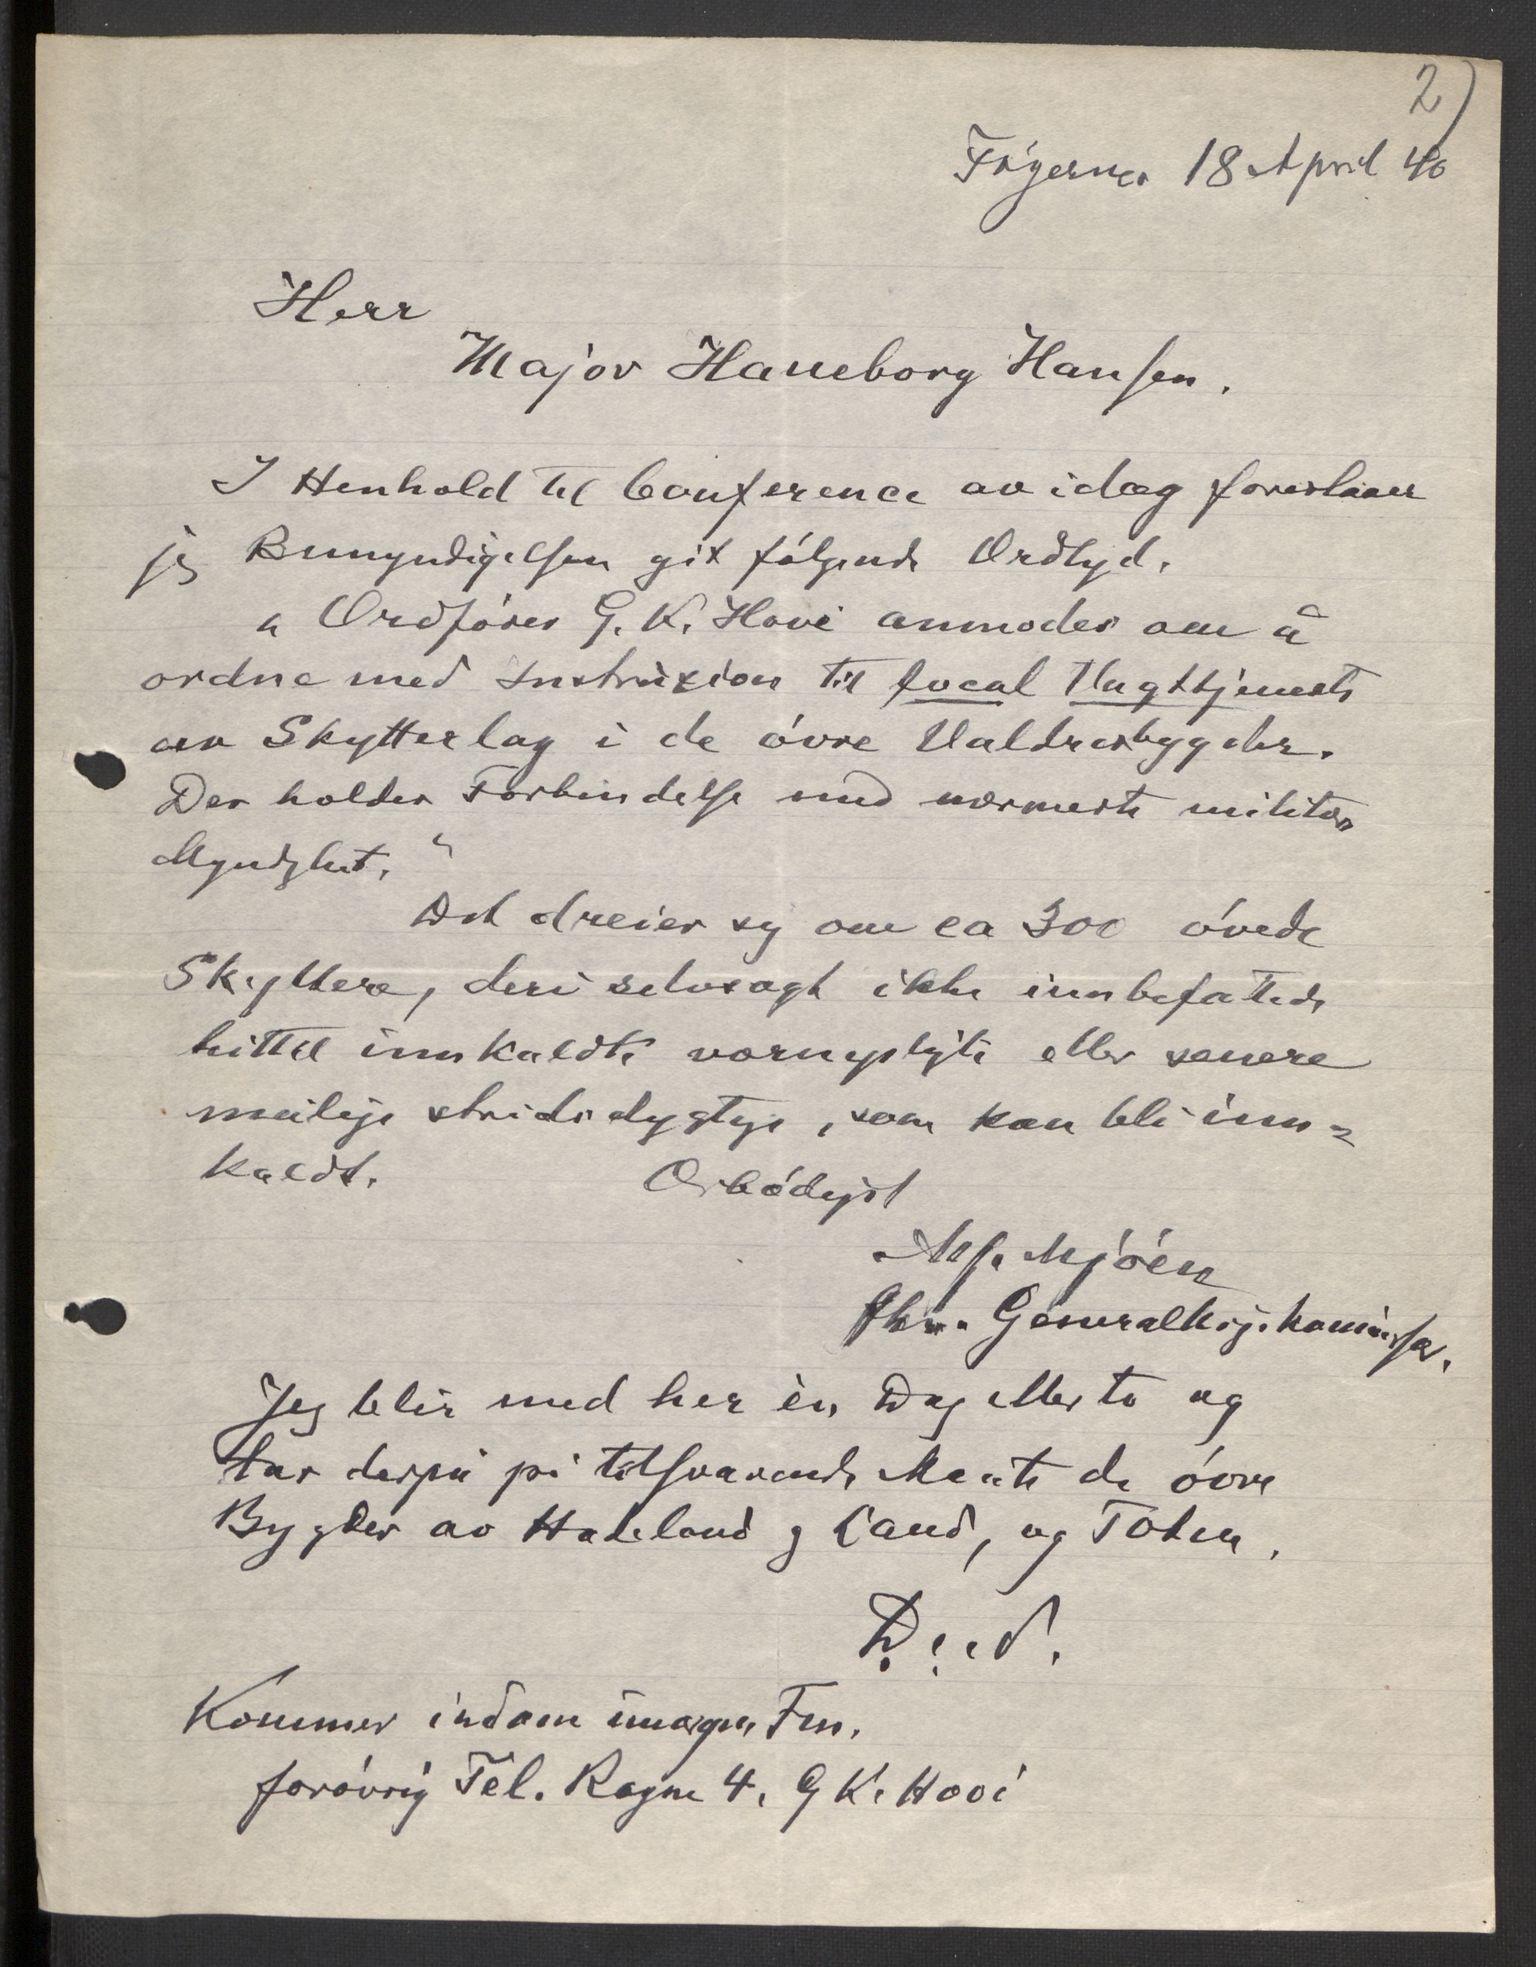 2)
Fagernes 18 April 40
Herr
Major Haneborg Hansen.
I Henhold til Conference av idag foreslaaer
jeg Bemyndigelsen git følgende Ordlyd.
" Ordfører G. K. Hovi anmodes om å
ordne med Instruxion til local Vagttjeneste
av Skytterlag i de øvre Valdresbygder.
Der holdes Forbindelse med nærmeste militær
Myndighet. "
Det dreier sig om ca 300 øvede
Skyttere, deri selvsagt ikke innbefattede
hittil innkaldte vernepligtige eller senere
mulige stridsdygtige, som kan bli inn=
kaldt. Ærbødigst
Alf. Mjöen
Generalkrigskommissær.
Jeg blir med her èn Dag eller to og
tar derpå på tilsvarende Maate de øvre
Bygder av Hadeland og Land, og Toten.
D.e.d.
Kommer indom imorgen Fm.
forøvrig Tel. Rogne 4. G K. Hovi